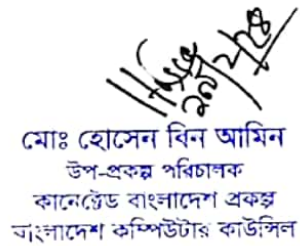 মোঃ হোসেন বিন আমিন
উপ-প্রকল্প পরিচালক
কানেক্টেড বাংলাদেশ প্রকল্প
বাংলাদেশ কম্পিউটার কাউন্সিল